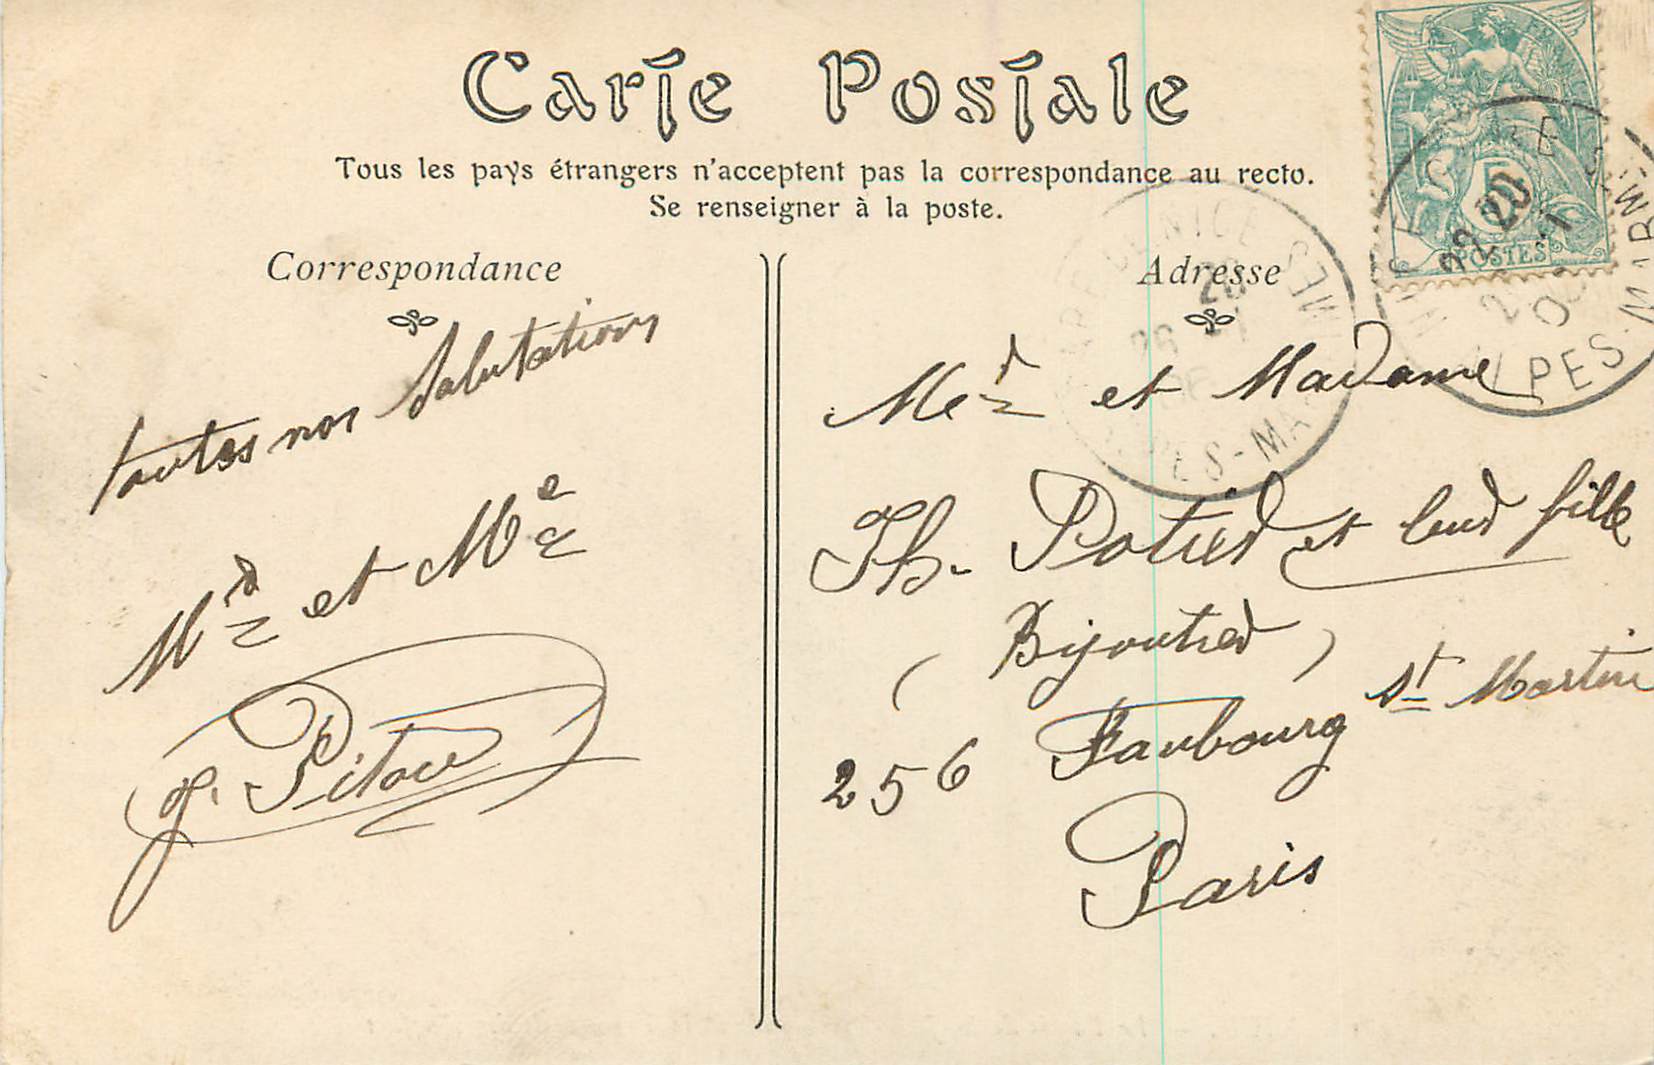 Carte Postale
Tous les pays étrangers n'acceptent pas la correspondance au recto.
Se renseigner à la poste.
Correspondance
toutes nos Salutations
Mr et Me
J. Pitou
Adresse
Mer et Madame
Th. Potier et leur fille
( Bijoutier )
256 Faubourg St Martin
Paris
5
POSTES
NICE
ALPES-MARMES
NICE
ALPES-MA